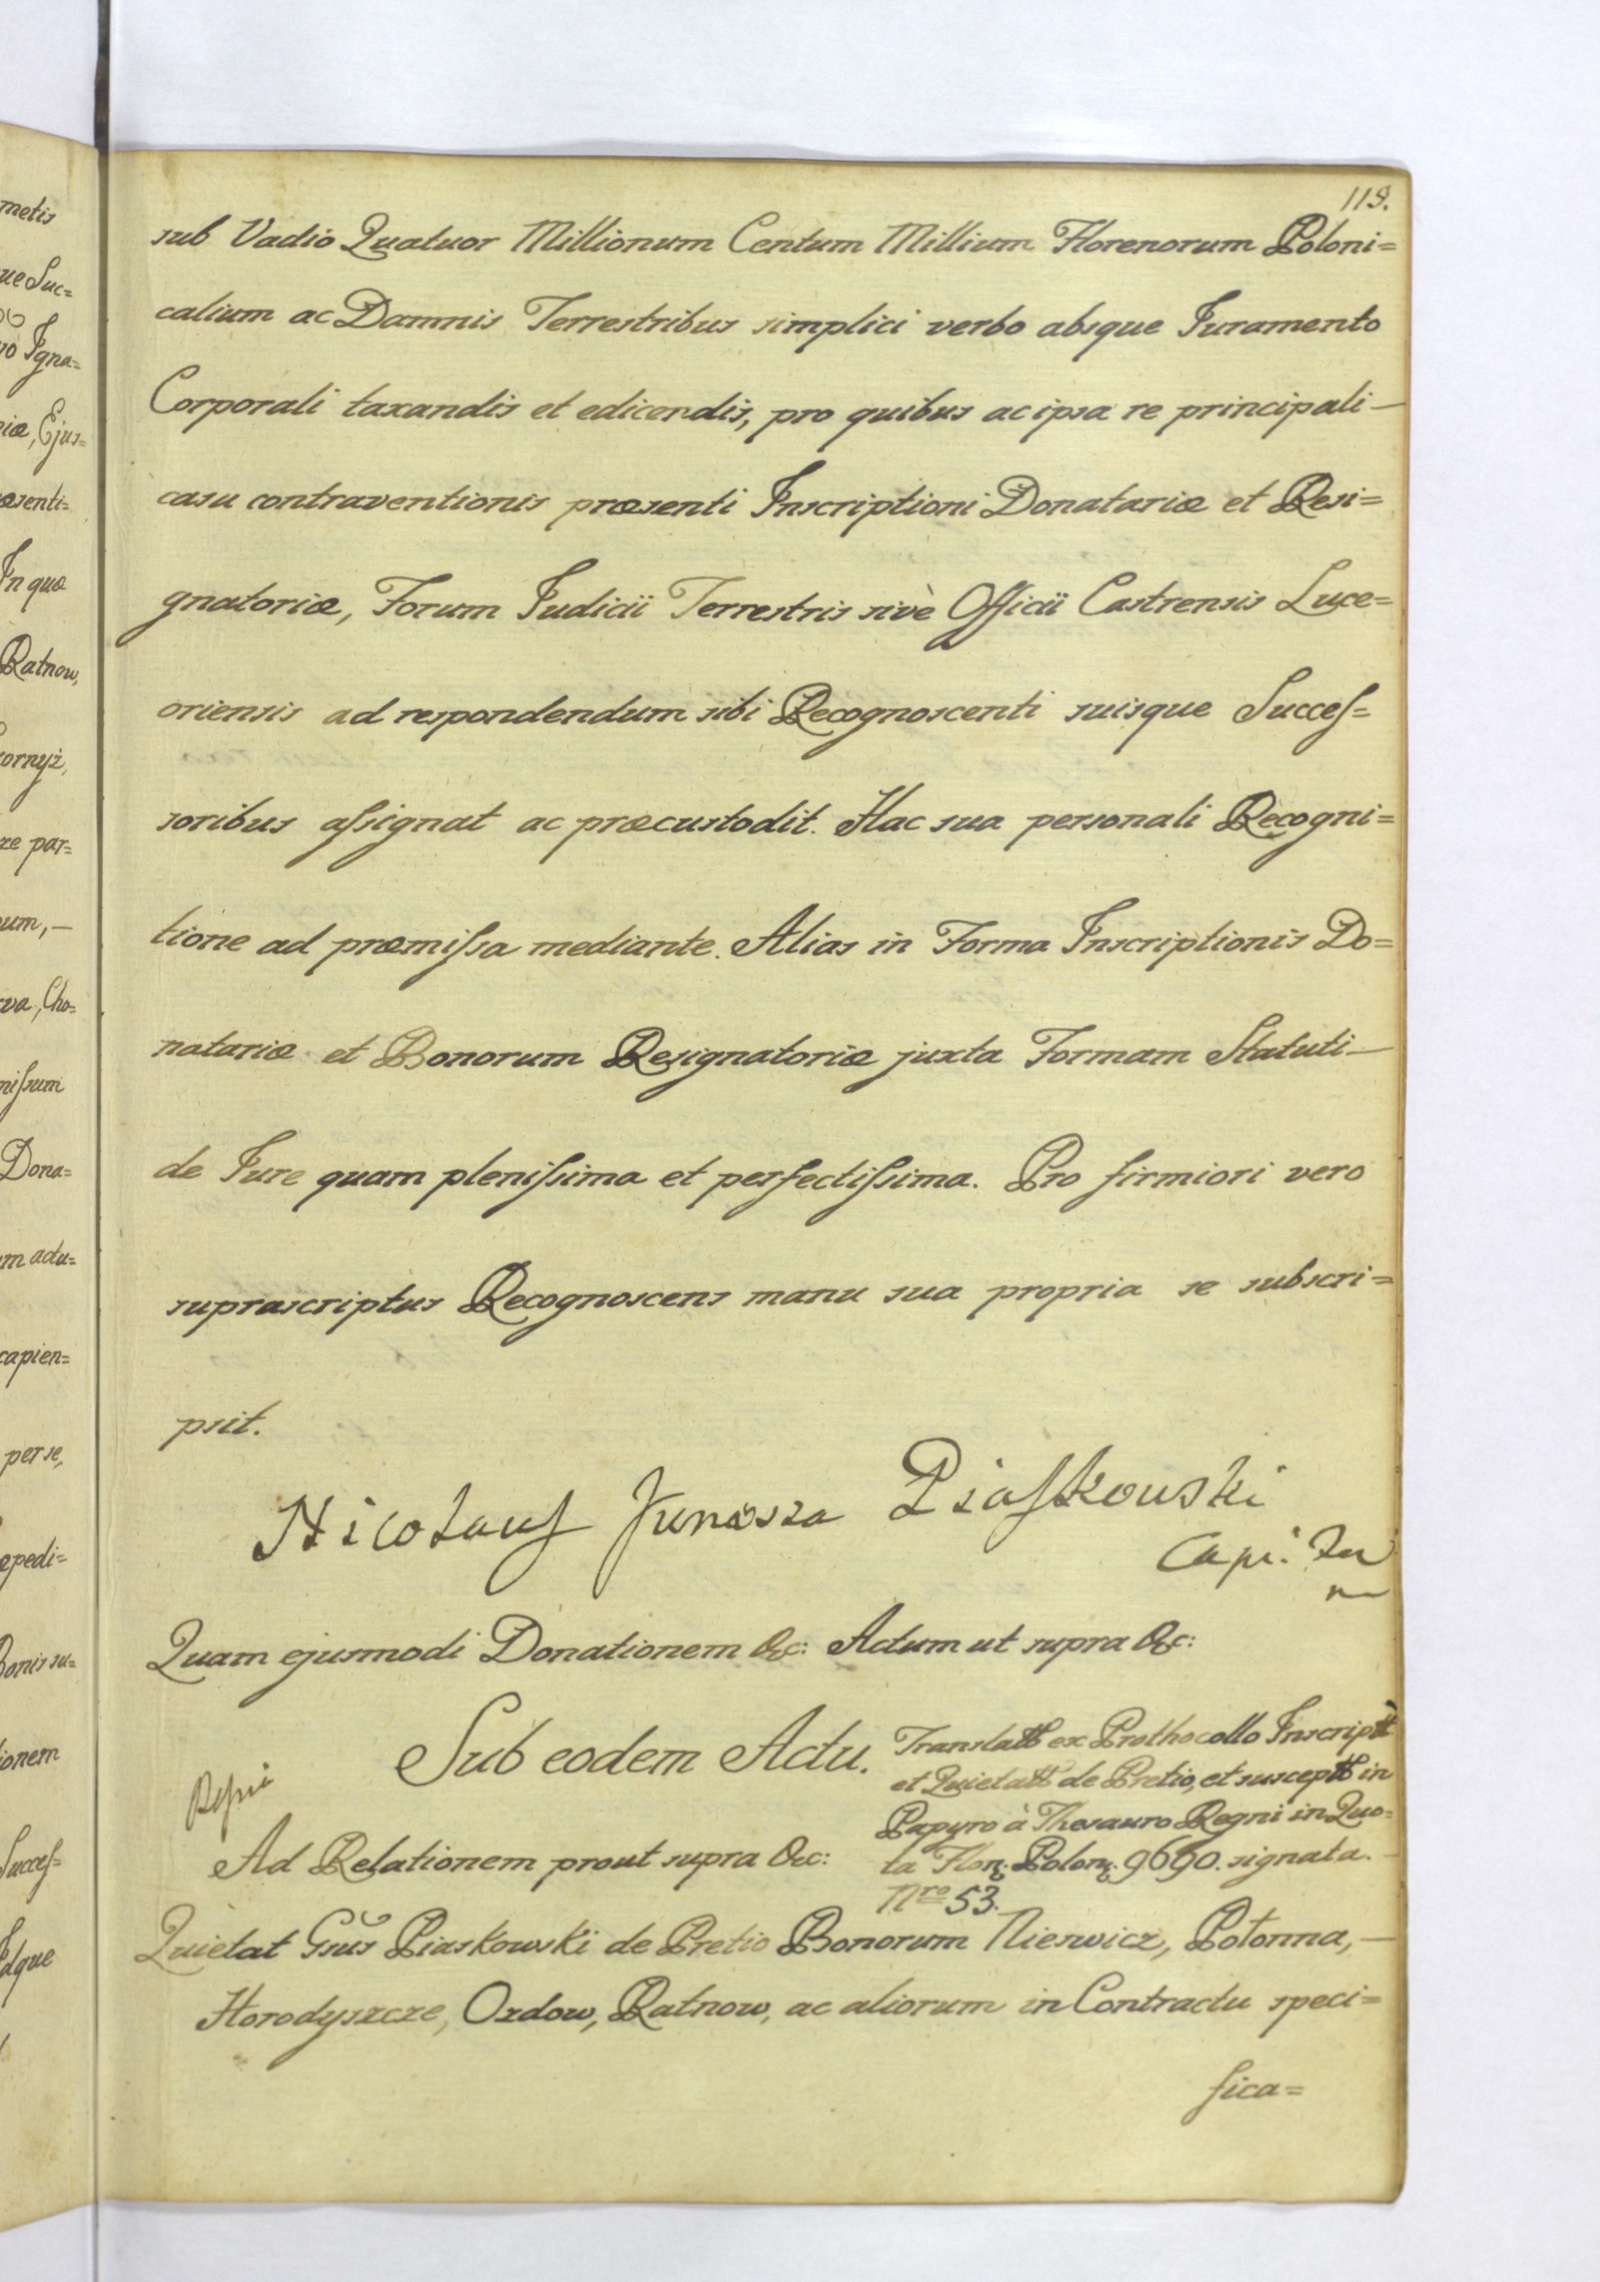 119.
sub Vadio Quatuor Millionum Centum Millium Florenorum Poloni=
calium ac Damnis Terrestribus simplici verbo absque Juramento
Corporali taxandis et edicendis, pro quibus ac ipsa re principali —
casu contraventionis præsenti Inscriptioni Donatariæ et Resi=
gnatoriæ, Forum Judicii Terrestris sivè Officii Castrensis Luce=
oriensis ad respondendum sibi Recognoscenti suisque Succeſ=
soribus aſsignat ac præcustodit. Hac sua personali Recogni=
tione ad præmiſsa mediante. Alias in Forma Inscriptionis Do=
natariæ et Bonorum Resignatoriæ juxta Formam Statuti —
de Jure quam pleniſsima et perfectiſsima. Pro firmiori vero
suprascriptus Recognoscens manu sua propria se subscri=
psit.
Nicolauſ Junosza Piaſkowski
Capi:
Quam ejusmodi Donationem &c: Actum ut supra &c:
Sub eodem Actu.
Translatt ex Prothocollo Inscriptt
et Quietatt de Pretio, et susceptt in
Papyro à Thesauro Regni in Quo=
ta Flor. Polon. 9690. signata. —
Nro 53.
Ad Relationem prout supra &c:
Quietat Gsus Piaskowski de Pretio Bonorum Nieswicz, Połonna, —
Horodyszcze, Ozdow, Ratnow, ac aliorum in Contractu speci=
fica=
metis
ue Suc=
vo Igna=
iæ, Ejus=
æsenti=
In quo
Ratnow,
ornyż,
re par=
um, —
va, Cho=
miſsum
Dona=
m actu=
capien=
per se,
pedi=
Bonis su=
ionem
Succeſ=
Idque